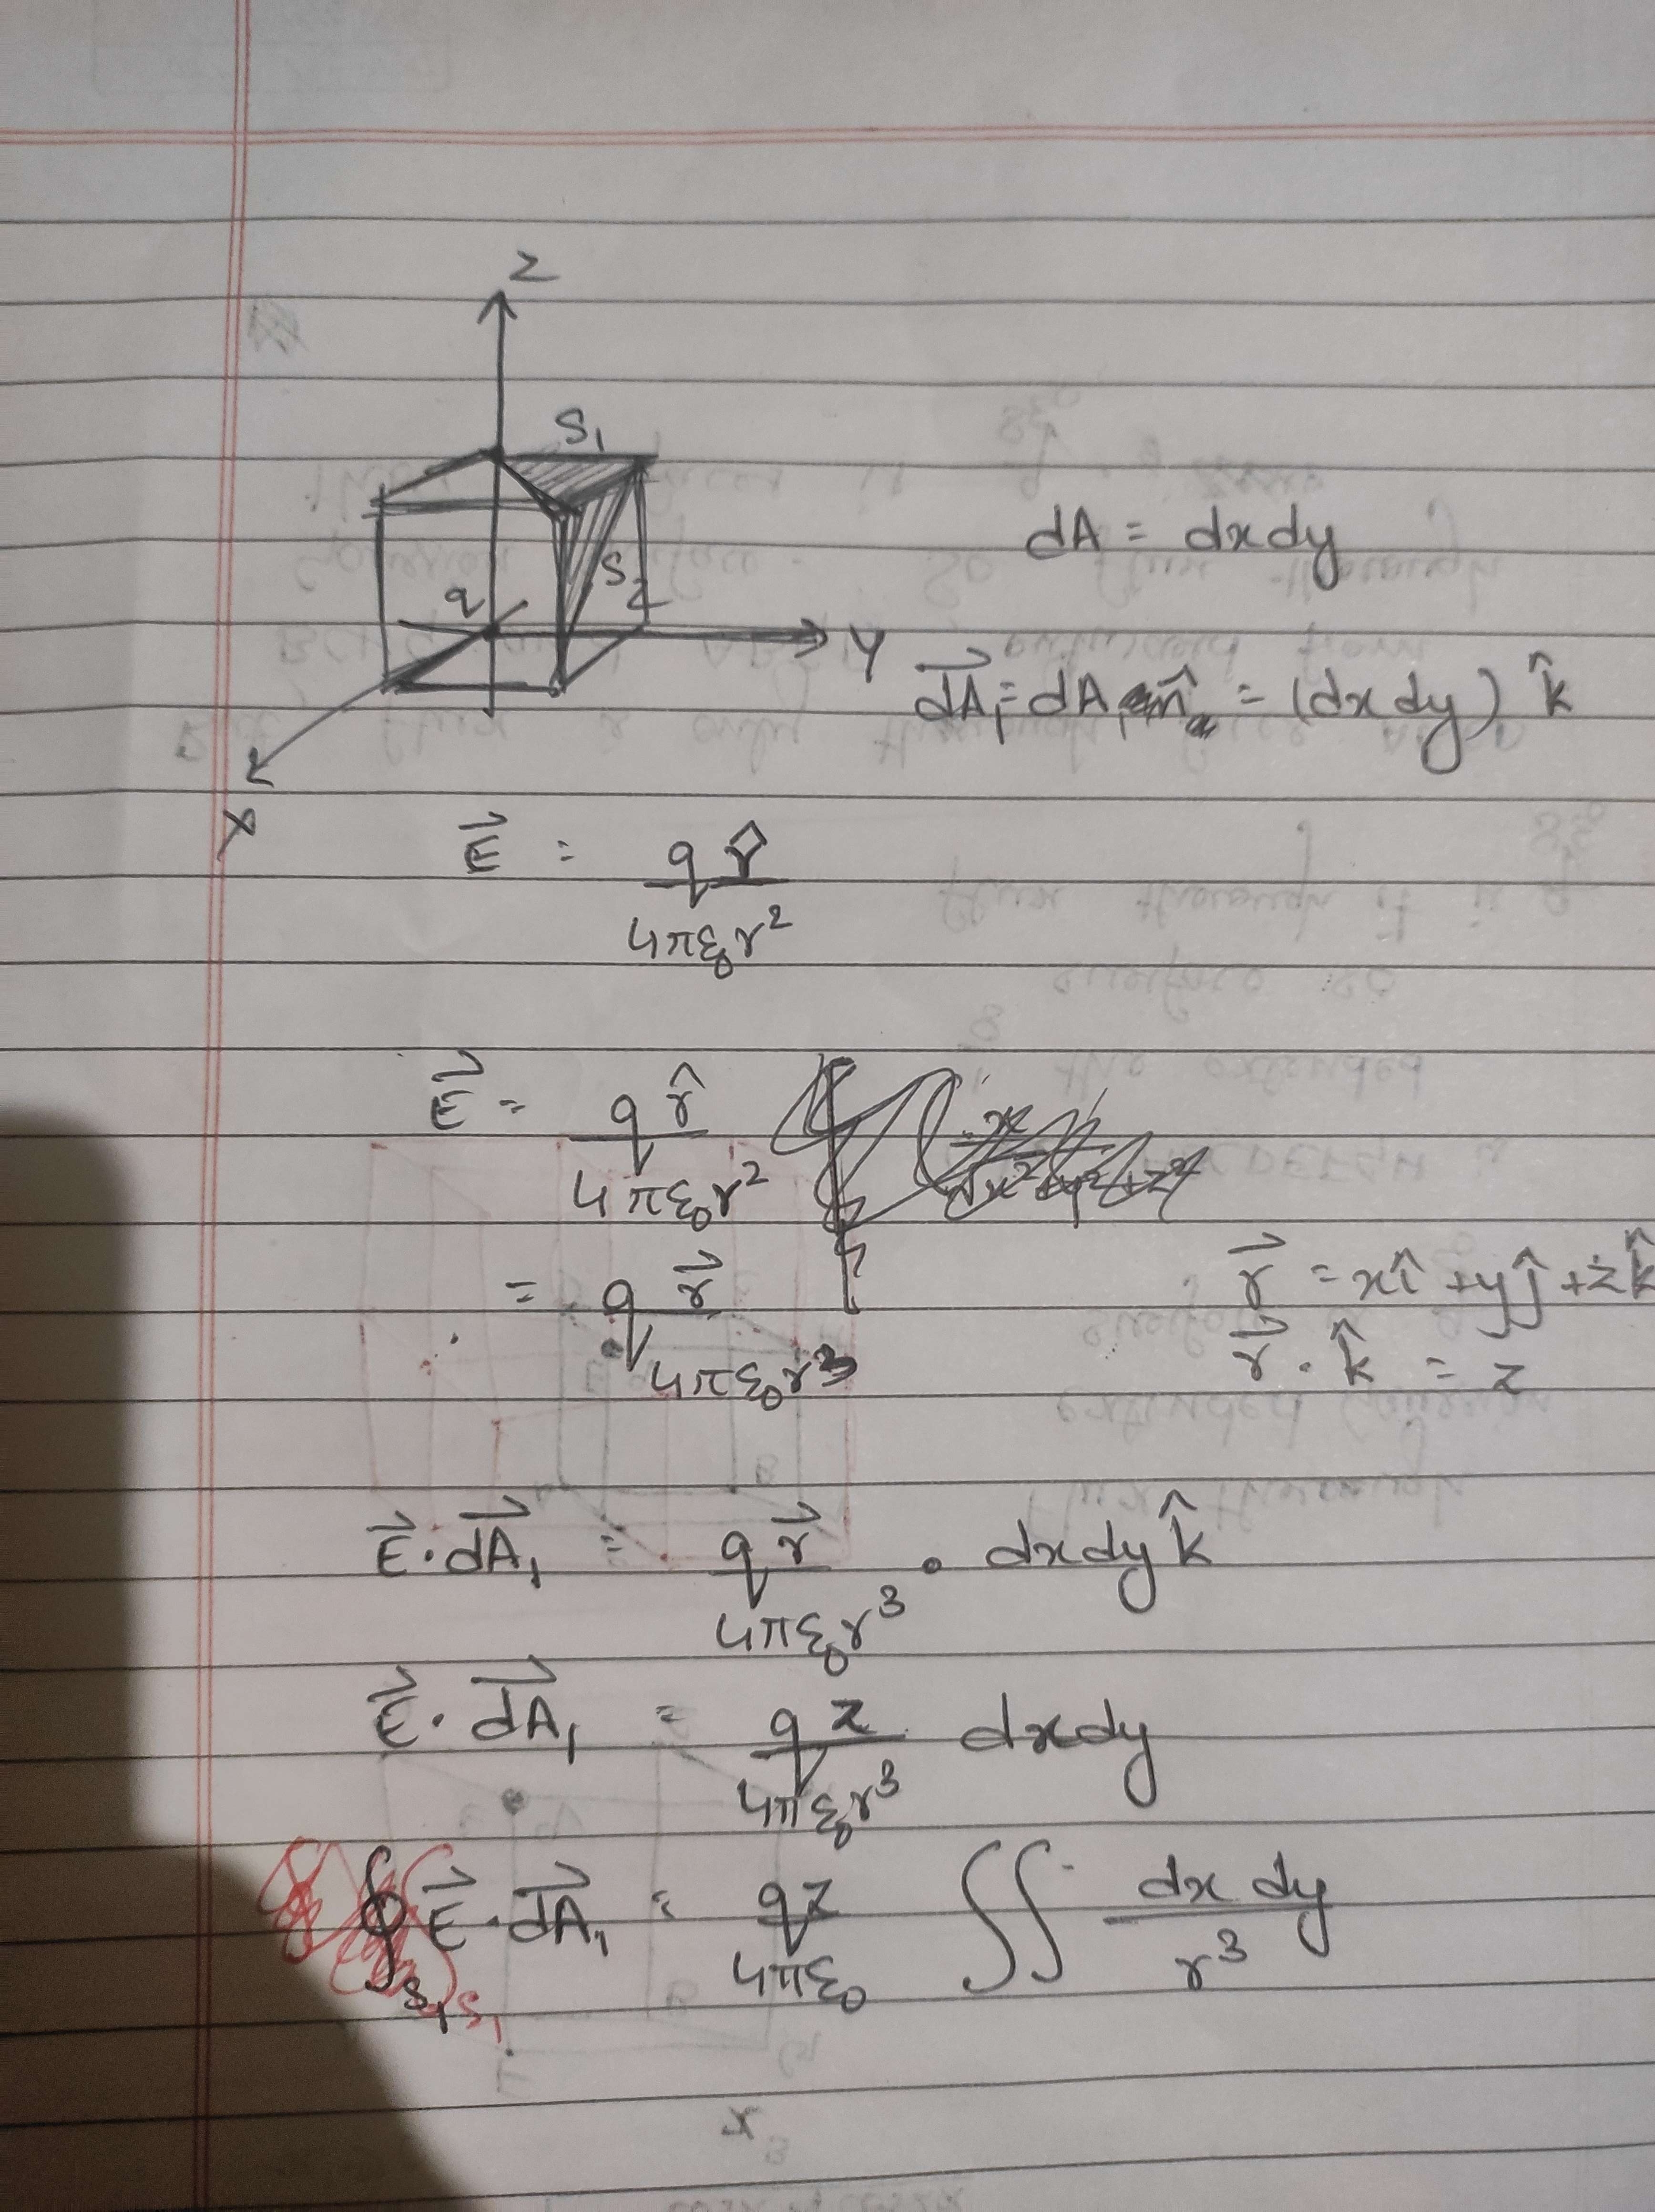 Z
S₁
S₂
q
Y
X
dA = dxdy
d⃗A₁ = dA₁ n̂ = (dx dy) k̂
E⃗ = q r̂ / 4πε₀r²
E⃗ = q r̂ / 4πε₀r²
= q r⃗ / 4πε₀r³
r⃗ = xî + yĵ + zk̂
r⃗ . k̂ = z
E⃗ . d⃗A₁ = q r⃗ / 4πε₀r³ . dxdy k̂
E⃗ . d⃗A₁ = q z / 4πε₀r³ dxdy
∮S₁ E⃗ . d⃗A₁ = qz / 4πε₀ ∬ dx dy / r³